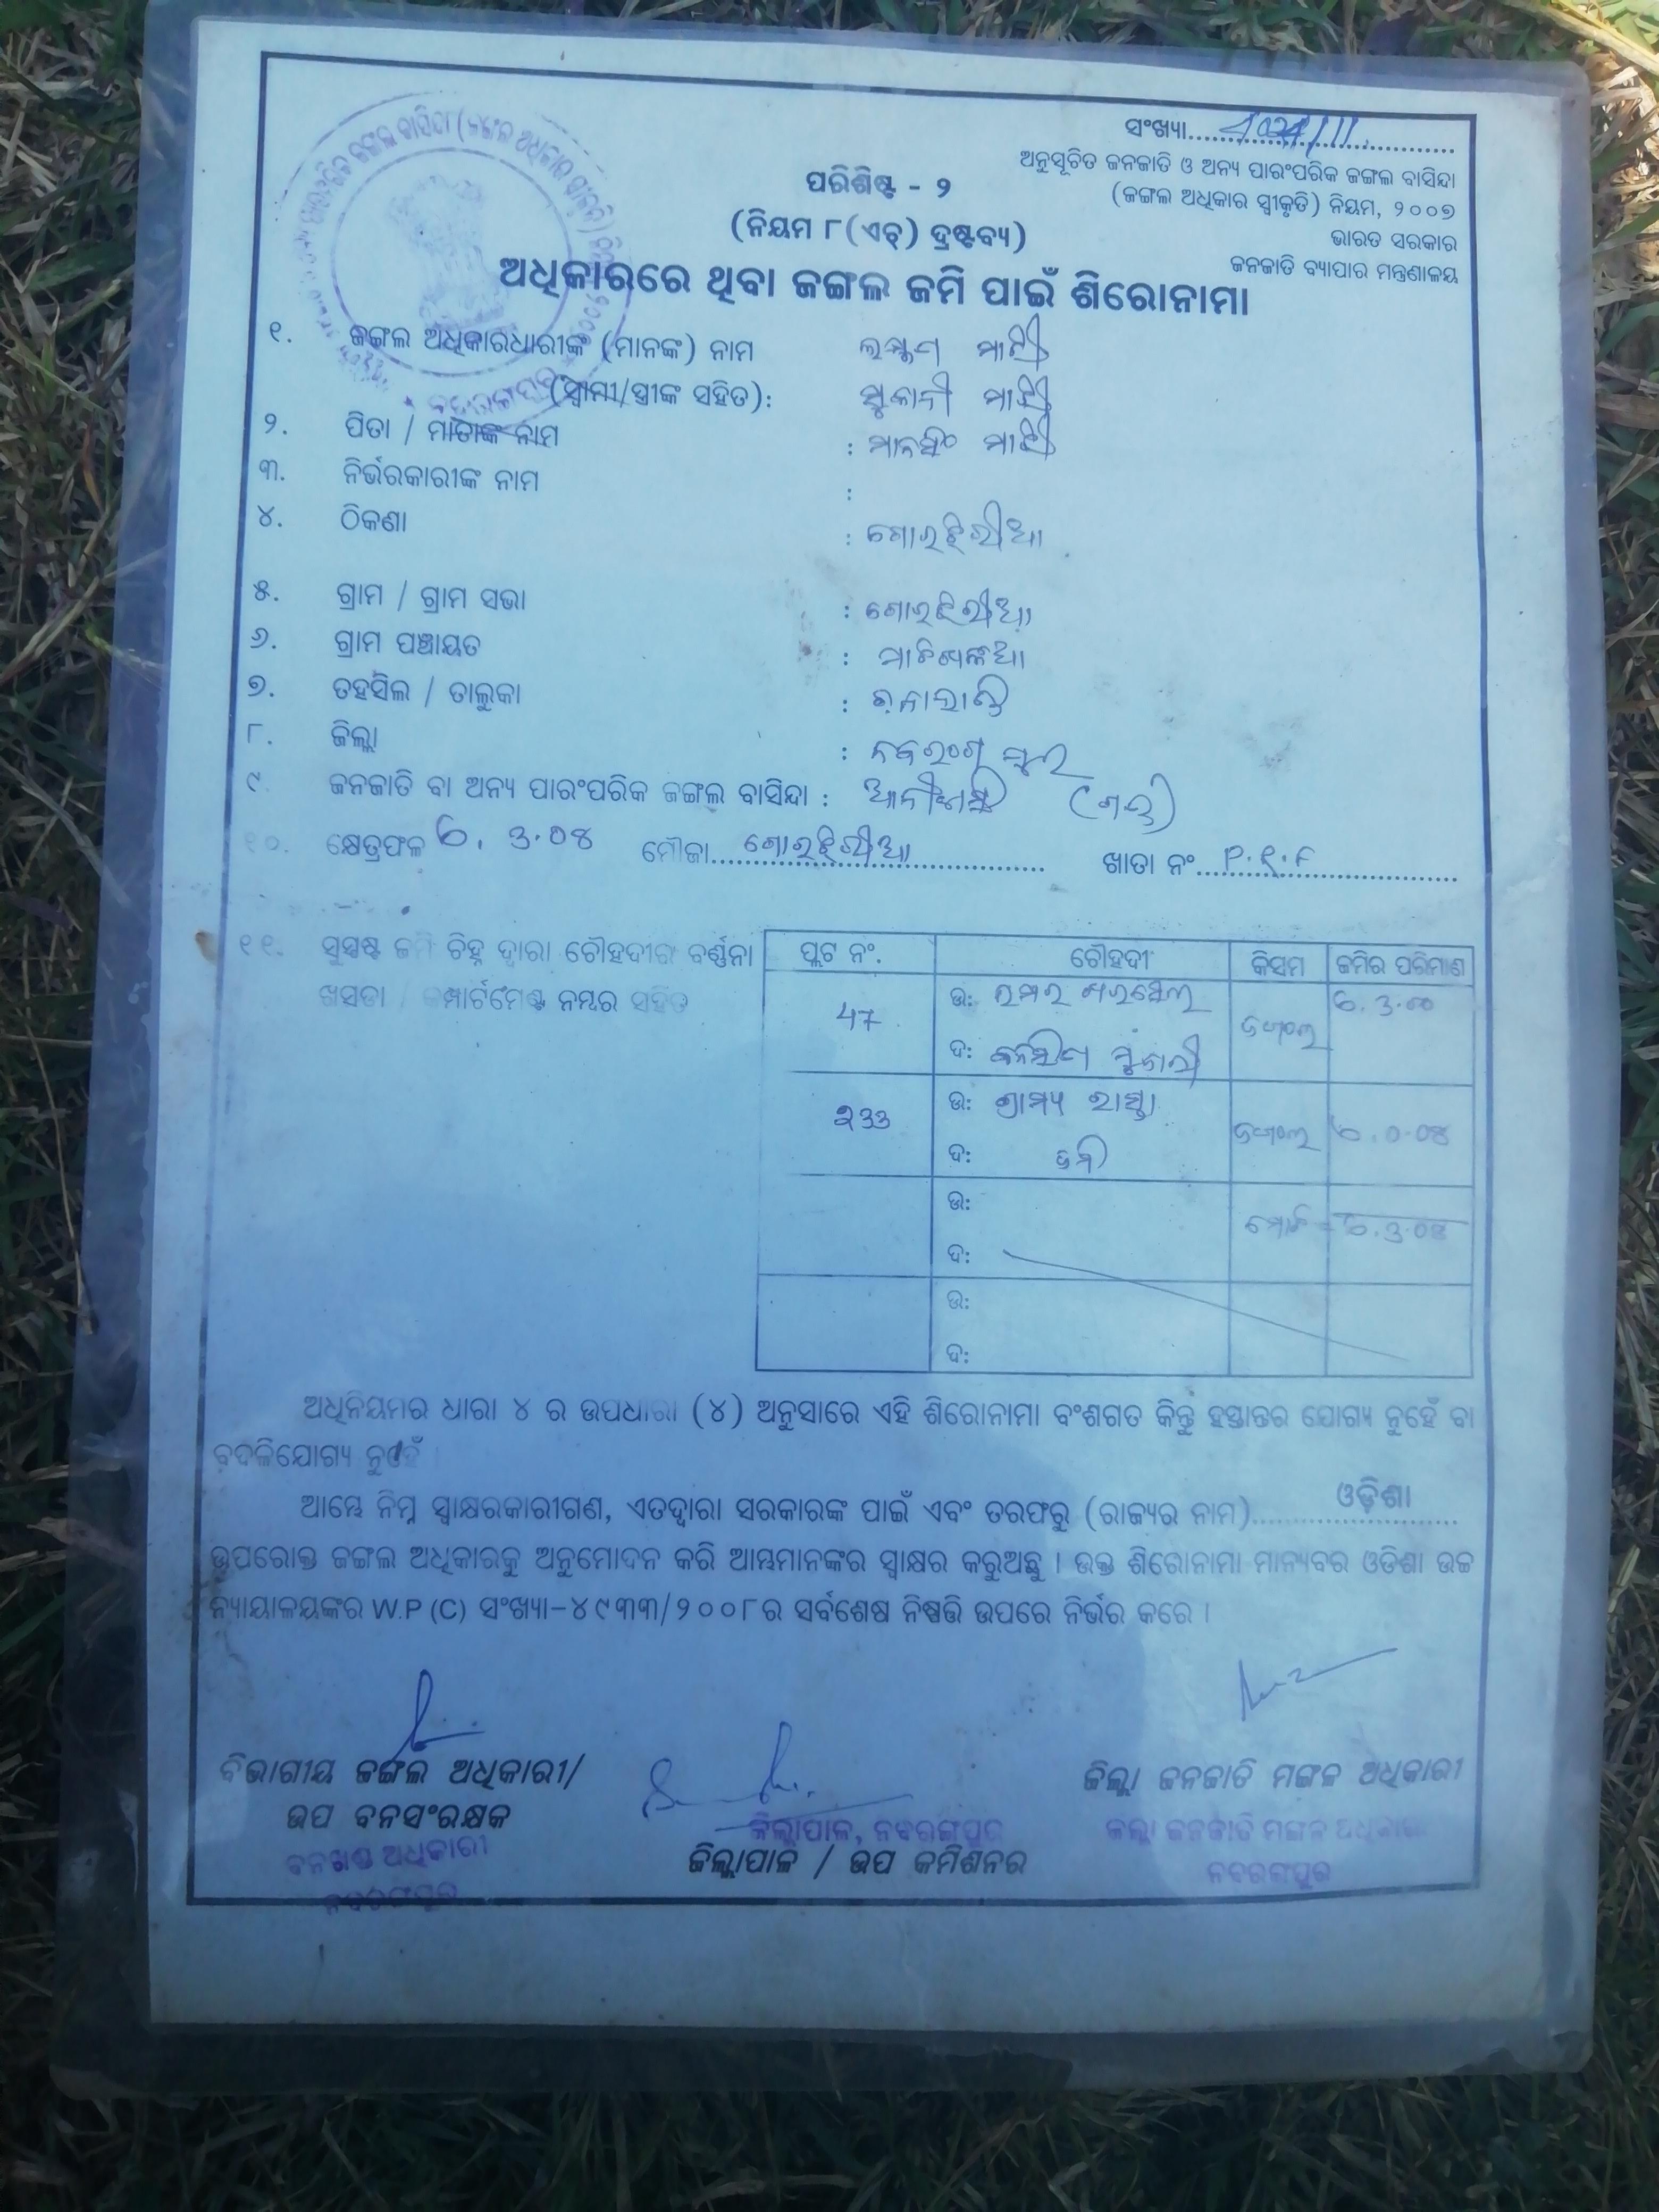 ସଂଖ୍ୟା
ଅନୁସୂଚିତ ଜନଜାତି ଓ ଅନ୍ୟ ପାରଂପରିକ ଜଙ୍ଗଲ ବାସିନ୍ଦା
(ଜଙ୍ଗଲ ଅଧିକାର ସ୍ୱୀକୃତି) ନିୟମ, ୨୦୦୭
ଭାରତ ସରକାର
ଜନଜାତି ବ୍ୟାପାର ମନ୍ତ୍ରଣାଳୟ
ପରିଶିଷ୍ଟ - ୨
(ନିୟମ ୮(ଏଚ୍) ଦ୍ରଷ୍ଟବ୍ୟ)
ଅଧିକାରରେ ଥିବା ଜଙ୍ଗଲ ଜମି ପାଇଁ ଶିରୋନାମା
୧. ଜଙ୍ଗଲ ଅଧିକାରଧାରୀଙ୍କ (ମାନଙ୍କ) ନାମ ଲକ୍ଷ୍ମଣ ମାଝି
(ସ୍ୱାମୀ/ସ୍ତ୍ରୀଙ୍କ ସହିତ): ସୁକାନୀ ମାଝି
୨. ପିତା / ମାତାଙ୍କ ନାମ : ମାନସିଂ ମାଝି
୩. ନିର୍ଭରକାରୀଙ୍କ ନାମ :
୪. ଠିକଣା : ଗୋରଝିରୀଆ
୫. ଗ୍ରାମ / ଗ୍ରାମ ସଭା : ଗୋରଝିରୀଆ
୬. ଗ୍ରାମ ପଞ୍ଚାୟତ :
୭. ତହସିଲ / ତାଲୁକା :
୮. ଜିଲ୍ଲା : ନବରଂଗପୁର
୯. ଜନଜାତି ବା ଅନ୍ୟ ପାରଂପରିକ ଜଙ୍ଗଲ ବାସିନ୍ଦା : (ଗଣ୍ଡ)
୧୦. କ୍ଷେତ୍ରଫଳ ଏ. ୩.୦୪ ମୌଜା ଗୋରଝିରୀଆ ଖାତା ନଂ P.R.F
୧୧. ସୁସ୍ପଷ୍ଟ ଜମି ଚିହ୍ନ ଦ୍ୱାରା ଚୌହଦୀର ବର୍ଣ୍ଣନା
ଖସଡା / କମ୍ପାର୍ଟମେଣ୍ଟ ନମ୍ବର ସହିତ
ପ୍ଲଟ ନଂ. ଚୌହଦୀ କିସମ ଜମିର ପରିମାଣ
47 ଉ: ଜଙ୍ଗଲ ଏ. ୩.୦୦
ଦ:
233 ଉ: ଗ୍ରାମ୍ୟ ରାସ୍ତା ଜଙ୍ଗଲ ଏ. ୦.୦୪
ଦ:
ଉ: ମୋଟ = ଏ. ୩.୦୪
ଦ:
ଉ:
ଦ:
ଅଧିନିୟମର ଧାରା ୪ ର ଉପଧାରା (୪) ଅନୁସାରେ ଏହି ଶିରୋନାମା ବଂଶଗତ କିନ୍ତୁ ହସ୍ତାନ୍ତର ଯୋଗ୍ୟ ନୁହେଁ ବା
ବଦଳିଯୋଗ୍ୟ ନୁହେଁ ।
ଆମ୍ଭେ ନିମ୍ନ ସ୍ୱାକ୍ଷରକାରୀଗଣ, ଏତଦ୍ୱାରା ସରକାରଙ୍କ ପାଇଁ ଏବଂ ତରଫରୁ (ରାଜ୍ୟର ନାମ) ଓଡ଼ିଶା
ଉପରୋକ୍ତ ଜଙ୍ଗଲ ଅଧିକାରକୁ ଅନୁମୋଦନ କରି ଆମ୍ଭମାନଙ୍କର ସ୍ୱାକ୍ଷର କରୁଅଛୁ । ଉକ୍ତ ଶିରୋନାମା ମାନ୍ୟବର ଓଡିଶା ଉଚ୍ଚ
ନ୍ୟାୟାଳୟଙ୍କର W.P (C) ସଂଖ୍ୟା-୪୯୩୩/୨୦୦୮ର ସର୍ବଶେଷ ନିଷ୍ପତ୍ତି ଉପରେ ନିର୍ଭର କରେ ।
ବିଭାଗୀୟ ଜଙ୍ଗଲ ଅଧିକାରୀ/
ଉପ ବନସଂରକ୍ଷକ
ବନଖଣ୍ଡ ଅଧିକାରୀ
ନବରଙ୍ଗପୁର
ଜିଲ୍ଲାପାଳ, ନବରଙ୍ଗପୁର
ଜିଲ୍ଲାପାଳ / ଉପ କମିଶନର
ଜିଲ୍ଲା ଜନଜାତି ମଙ୍ଗଳ ଅଧିକାରୀ
ଜିଲ୍ଲା ଜନଜାତି ମଙ୍ଗଳ ଅଧିକାରୀ
ନବରଙ୍ଗପୁର